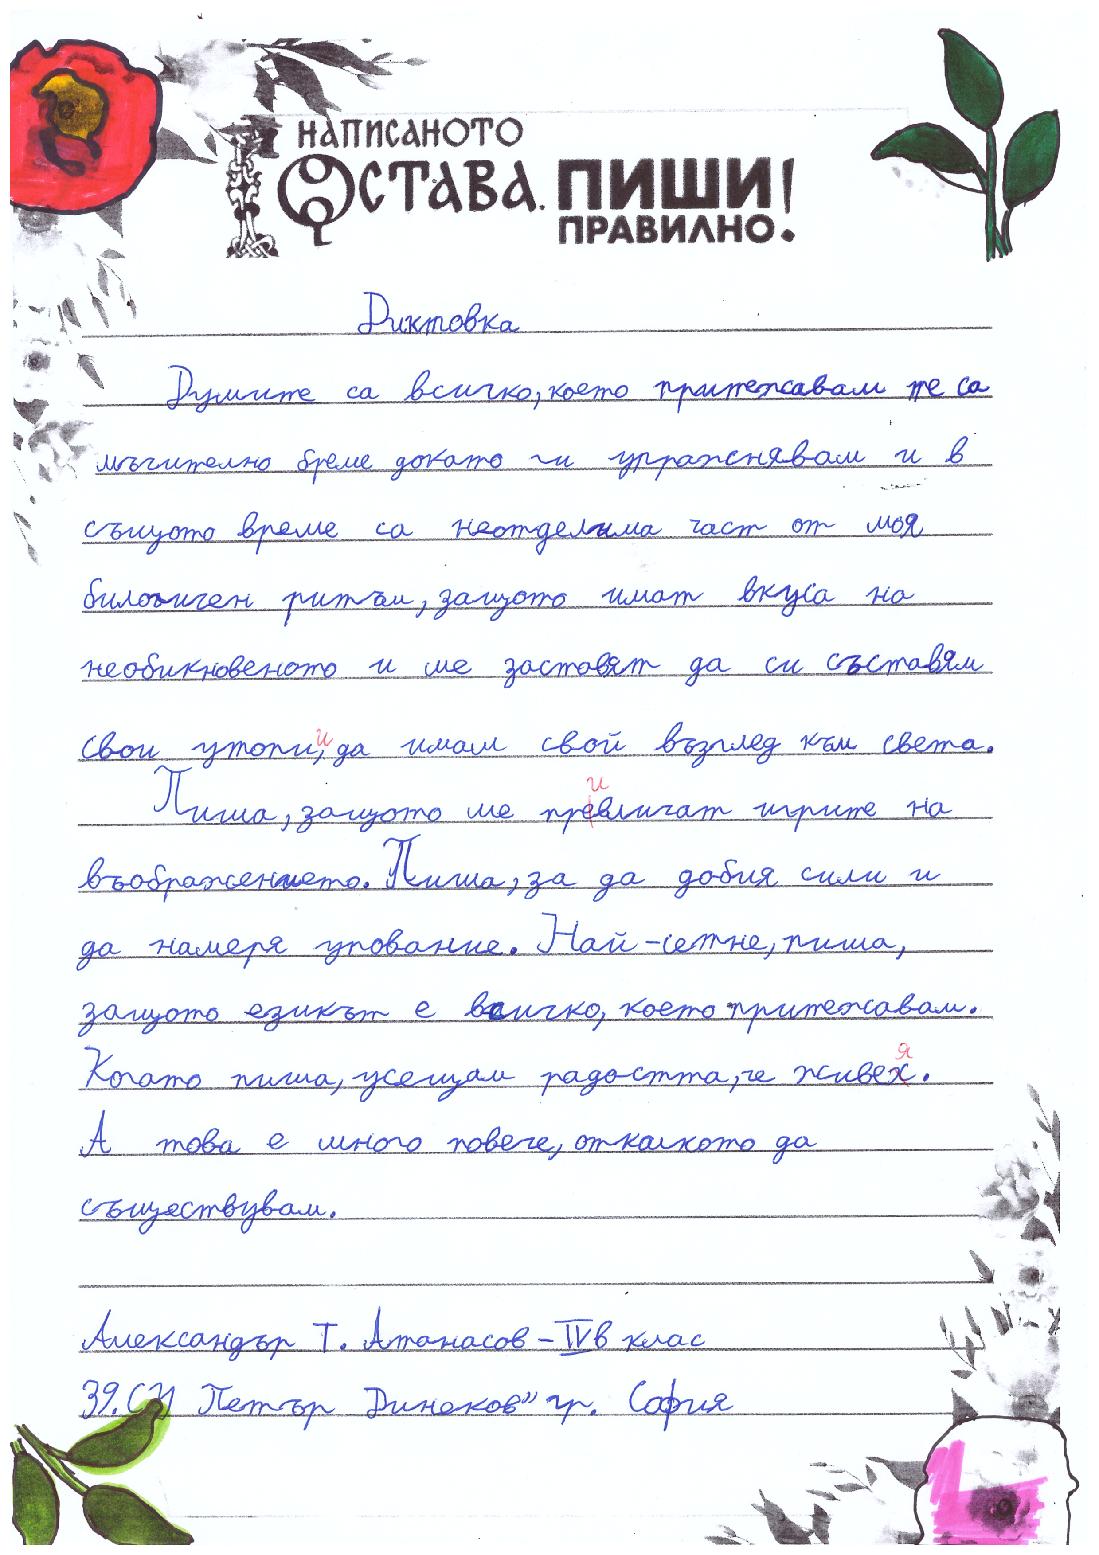 НАПИСАНОТО
ОСТАВА. ПИШИ!
ПРАВИЛНО.
Диктовка
Думите са всичко, което притежавам те са
мъчително бреме докато ги упражнявам и в
същото време са неотделима част от моя
билогичен ритъм, защото имат вкуса на
необикновеното и ме заставят да си съставям
свои утопии, да имам свой възглед към света.
и
Пиша, защото ме превличат игрите на
въображението. Пиша, за да добия сили и
да намеря упование. Най-сетне, пиша,
защото езикът е всичко, което притежавам.
я
Когато пиша, усещам радостта, че живех.
А това е много повече, отколкото да
съществувам.
Александър Т. Атанасов - IVв клас
39. СУ Петър Динеков" гр. София